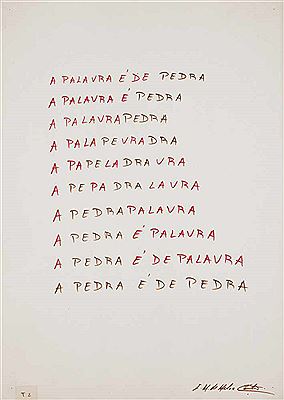 A PALAVRA É DE PEDRA
A PALAVRA É PEDRA
A PALAVRAPEDRA
A PALAPEVRADRA
A PAPELADRAVRA
A PEPADRALAVRA
A PEDRAPALAVRA
A PEDRA É PALAVRA
A PEDRA É DE PALAVRA
A PEDRA É DE PEDRA